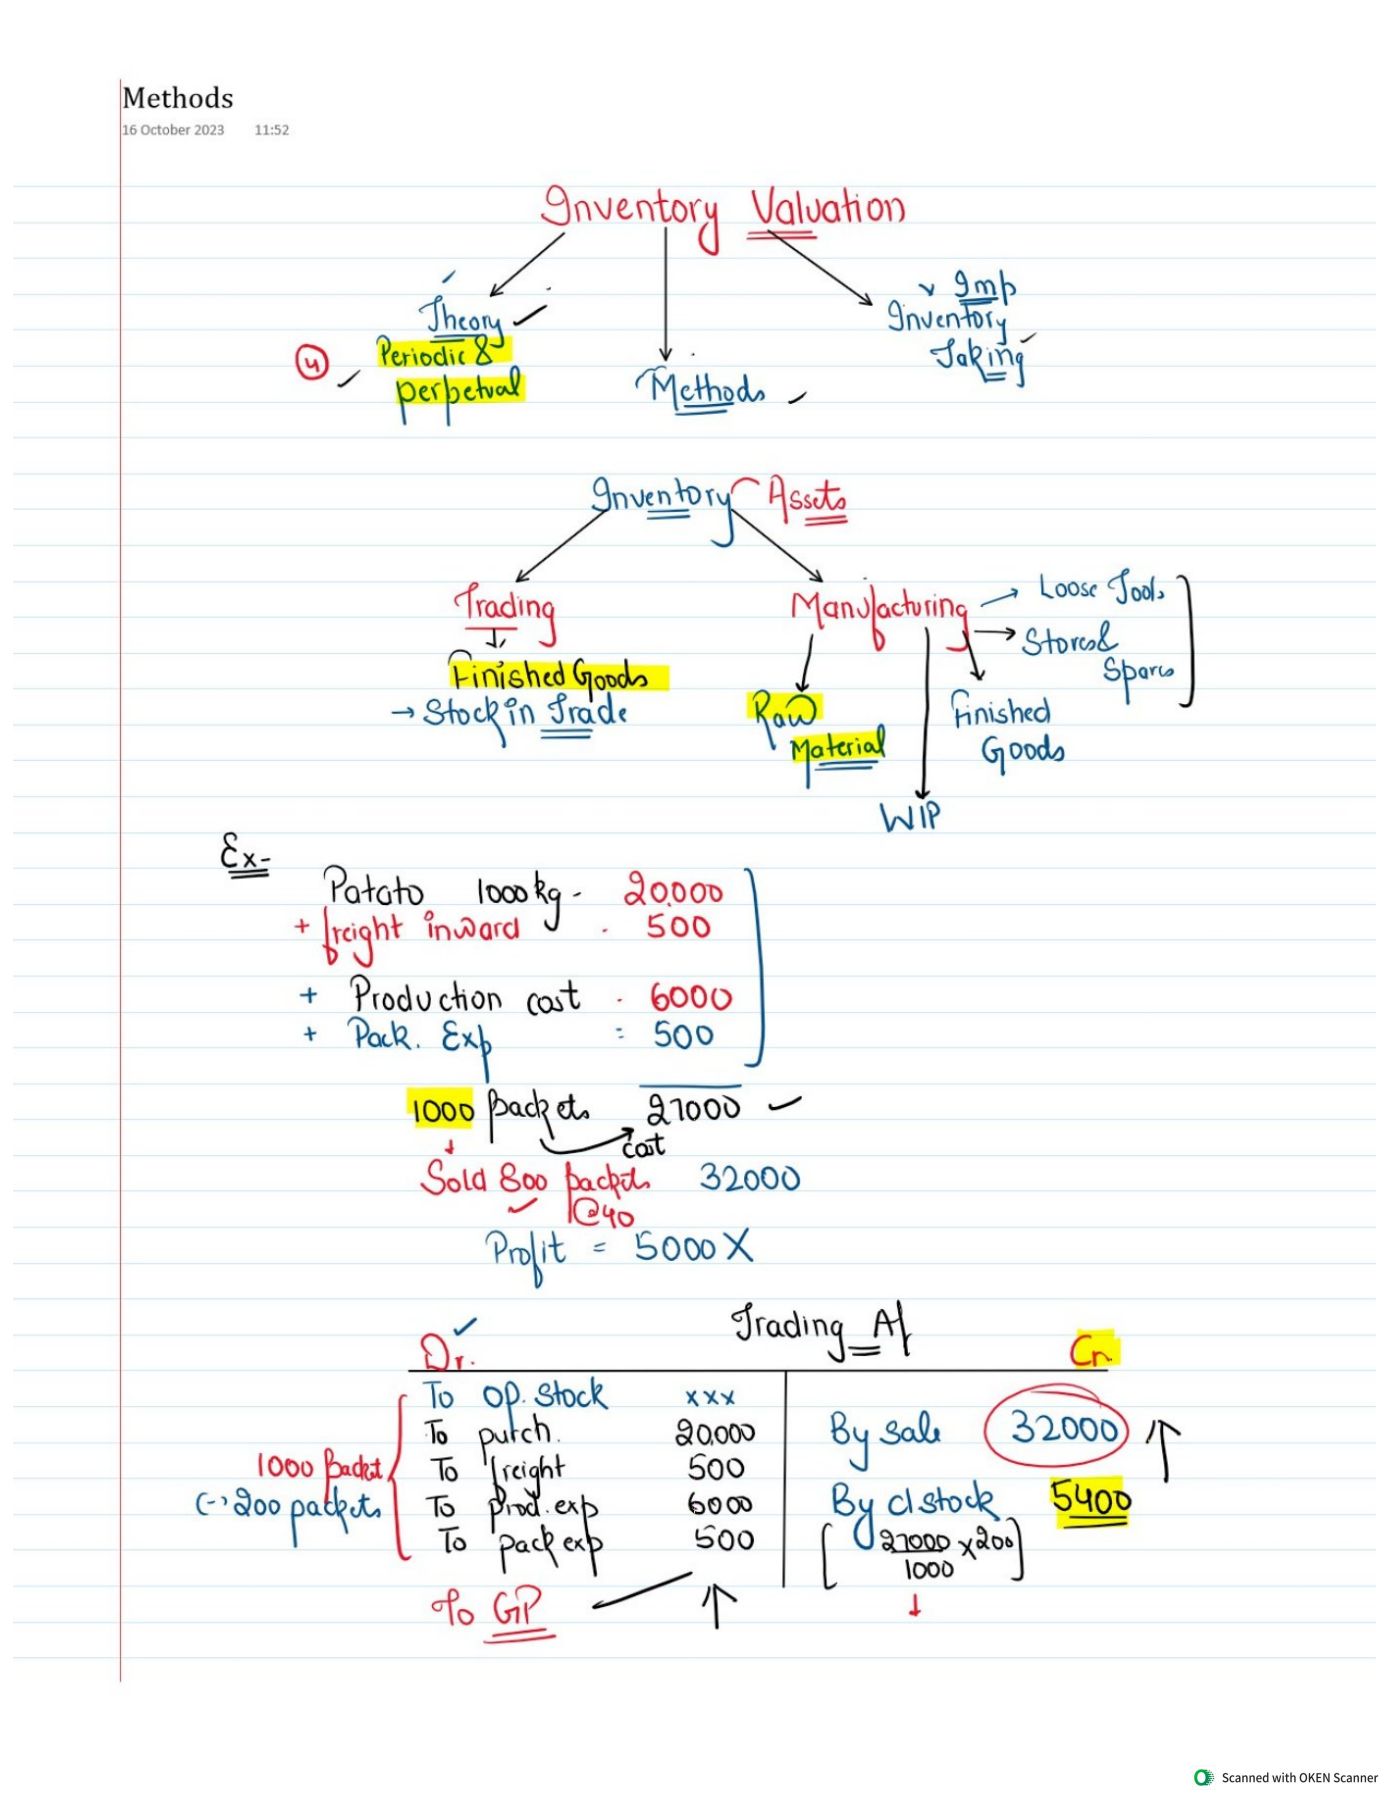 Methods
16 October 2023 11:52
Inventory Valuation
Theory
Periodic &
perpetual
4
Methods
Imp
Inventory
Taking
Inventory Assets
Trading
Finished Goods
→ Stock in Trade
Manufacturing
→ Loose Tools
→ Stores &
Spares
Raw
Material
Finished
Goods
WIP
Ex-
Patato 1000 kg - 20,000
+ freight inward . 500
+ Production cost . 6000
+ Pack. Exp = 500
1000 packets 27000
cost
Sold 800 packets 32000
@40
Profit = 5000 X
Trading A/
Dr. Cr.
To Op. Stock xxx
To purch. 20,000
By Sale 32000
To freight 500
1000 Packet
(-) 200 packets
To prod. exp 6000
By cl stock 5400
To pack exp 500
[27000/1000 x 200]
To GP
Scanned with OKEN Scanner